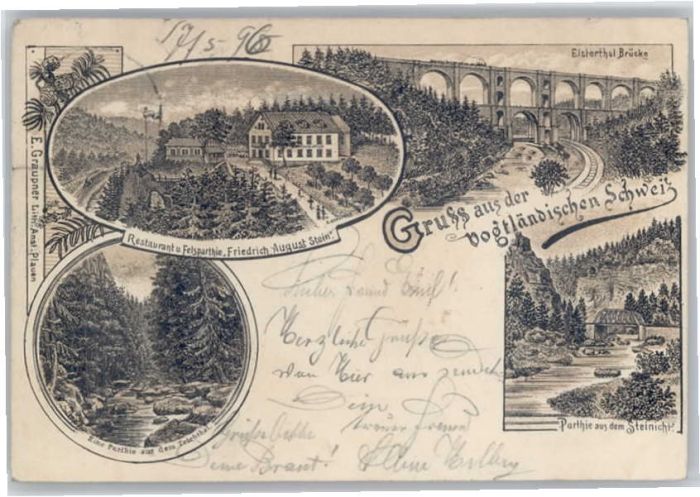 17/5 96
Elsterthal Brücke
E. Graupner Lith. Anst. Plauen
Restaurant u. Felsparthie „Friedrich-August Stein“.
Gruss aus der
Vogtländischen Schweiz
Eine Parthie aus dem
Parthie aus dem Steinicht.
Lieber
Herzliche Grüße
von Hier aus sendet
Dein
treuer Freund
Grüße
Deine Braut!